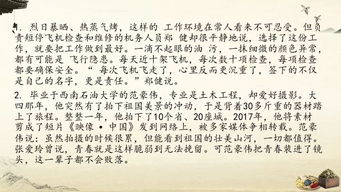 1. 烈日暴晒、热蒸气烤，这样的 工作环境在常人看来不可忍受。但负
责短停飞机检查和维修的机务人员郑 健却很干静地说，选择了这份工
作，就要把工作做到最好。一滴不起眼的油 污，一抹细微的颜色异常，
都有可能是 飞行隐患。每天近十架飞机，每次数十项检查，每项检查
都要确保安全。 “ 每次飞机飞走了，心里反而更沉重了，签下的不仅
是自己的名字，更是责任。”郑健说。
2. 毕业于西南石油大学的范豪伟，专业是土木工程，却爱好摄影。大
四那年，他突然有了拍下祖国美景的冲动，于是背着30多斤重的器材踏
上了旅程。整整一年，他拍下了10个省、20座城。2017年，他将素材
剪成了短片《映像·中国》发到网络上，被多家媒体争相转载。范豪
伟说：虽然拍摄的时候很累，但能看到祖国的壮美山河，一切都值得。
张爱玲曾说，青春就是这样脆弱到无法挽留。可范豪伟把青春装进了镜
头，这一辈子都不会败落。